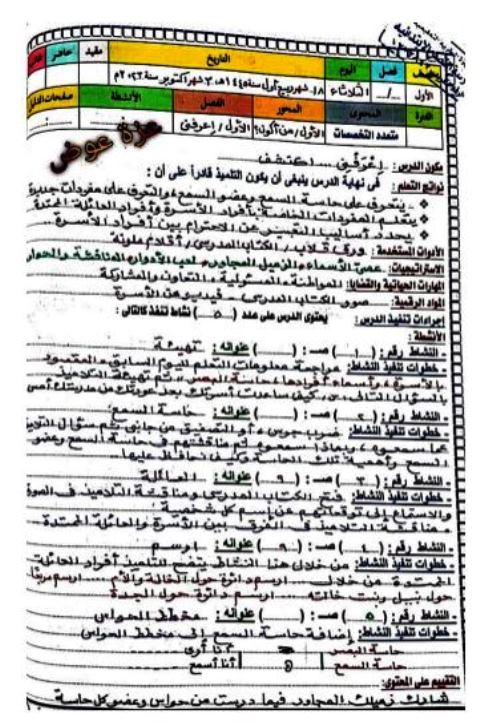 فصل اليوم التاريخ مقيد حاضر
الأول .../... الثلاثاء ١٨ شهر ربيع أول سنة ١٤٤٥هـ، ٣ شهر أكتوبر سنة ٢٠٢٣م
المحتوى المحور الفصل الأنشطة صفحات الدليل
متعدد التخصصات الأول / من أكون؟ الأول / اعرفني
عزة عوض
مكون الدرس: اعرفني .... اكتشف
نواتج التعلم: في نهاية الدرس ينبغي أن يكون التلميذ قادراً على أن:
يتعرف على حاسة السمع وعضو السمع، والتعرف على مفردات جديدة
المفردات الخاصة بأفراد الأسرة وأفراد العائلة الممتدة
يحدد أساليب التعبير عن الاحترام بين أفراد الأسرة
الأدوات المستخدمة: ورق قلاب / الكتاب المدرسي / أقلام ملونة
الاستراتيجيات: عصى الأسماء، الزميل المجاور، لعب الأدوار، المناقشة والحوار
المهارات الحياتية والقضايا: المواطنة، المسئولية، التعاون والمشاركة
المواد الرقمية: صور الكتاب المدرسي - فيديو عن الأسرة
إجراءات تنفيذ الدرس: يحتوي الدرس على عدد (٥) نشاط تنفذ كالتالي:
الأنشطة:
- النشاط رقم: (١) صـ: ( ) عنوانه: تهيئة
- خطوات تنفيذ النشاط: مراجعة معلومات التعلم لليوم السابق، المقصود
بالأسرة، وأسماء أفرادها، حاسة البصر، ثم تهيئة التلاميذ
بالسؤال التالي: س: كيف ساعدت أسرتك بعد عودتك من مدرستك أمس
- النشاط رقم: (٢) صـ: ( ) عنوانه: حاسة السمع
- خطوات تنفيذ النشاط: ضرب جرس، أو التصفيق من جانبي ثم سؤال التلاميذ
عما سمعوه، وبماذا سمعوه ثم مناقشتهم في حاسة السمع وعضو
السمع وأهمية تلك الحاسة وكيف نحافظ عليها
- النشاط رقم: (٣) صـ: (٩) عنوانه: العائلة
- خطوات تنفيذ النشاط: فتح الكتاب المدرسي ومناقشة التلاميذ في الصورة
والاستماع إلى توقعاتهم عن اسم كل شخصية
مناقشة التلاميذ في الفرق بين الأسرة والعائلة الممتدة
- النشاط رقم: (٤) صـ: (٩) عنوانه: ارسم
- خطوات تنفيذ النشاط: من خلال هذا النشاط يتضح للتلميذ أفراد العائلة
الممتدة من خلال ..... ارسم دائرة حول الخالة والأم .... ارسم مربعًا
حول نبيل وبنت خالته .... ارسم دائرة حول الجدة
- النشاط رقم: (٥) صـ: ( ) عنوانه: مخطط الحواس
- خطوات تنفيذ النشاط: إضافة حاسة السمع إلى مخطط الحواس
حاسة البصر أنا أرى
حاسة السمع أنا أسمع
التقييم على المحتوى:
شارك زميلك المجاور فيما درست من حواس وعضو كل حاسة